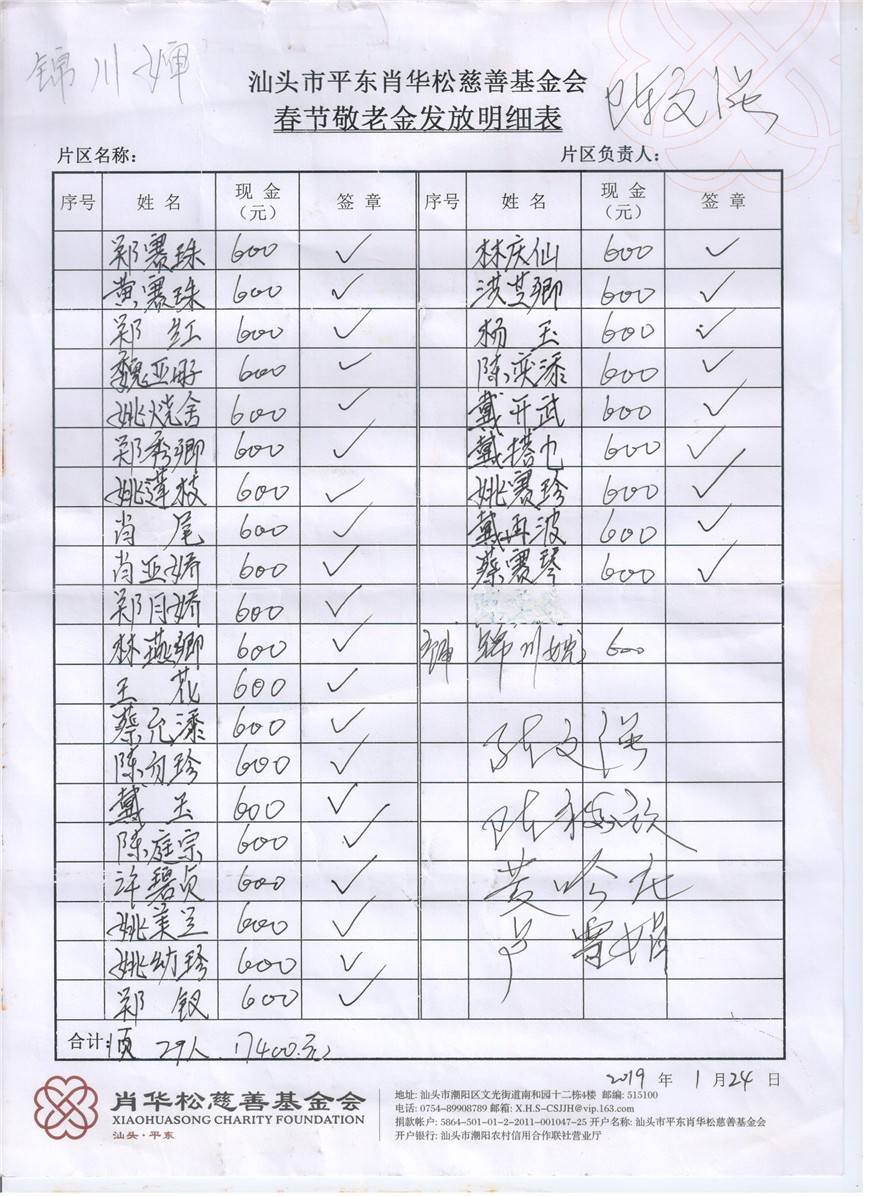 锦川
汕头市平东肖华松慈善基金会
春节敬老金发放明细表
片区名称: 片区负责人:
序号 姓名 现金(元) 签章 序号 姓名 现金(元) 签章
郑赛珠 600 ✓ 林庆仙 600 ✓
黄赛珠 600 ✓ 洪芝卿 600 ✓
郑红 600 ✓ 杨玉 600 ✓
魏亚 600 ✓ 陈奕添 600 ✓
姚烧舍 600 ✓ 戴开武 600 ✓
郑秀卿 600 ✓ 戴搭 600 ✓
姚莲枝 600 ✓ 姚赛珍 600 ✓
肖尾 600 ✓ 戴再波 600 ✓
肖亚娇 600 ✓ 蔡赛琴 600 ✓
郑月娇 600 ✓
林燕卿 600 ✓ 锦川 600
王花 600 ✓
蔡允添 600 ✓
陈 珍 600 ✓
戴玉 600 ✓
陈庭宗 600 ✓
许碧贞 600 ✓
姚美兰 600 ✓
姚幼珍 600 ✓
郑钗 600 ✓
合计: 29人 17400元
2019 年 1 月 24 日
肖华松慈善基金会
XIAOHUASONG CHARITY FOUNDATION
汕头·平东
地址: 汕头市潮阳区文光街道南和园十二栋4楼 邮编: 515100
电话: 0754-89908789 邮箱: X.H.S-CSJJH@vip.163.com
捐款帐户: 5864-501-01-2-2011-001047-25 开户名称: 汕头市平东肖华松慈善基金会
开户银行: 汕头市潮阳农村信用合作联社营业厅